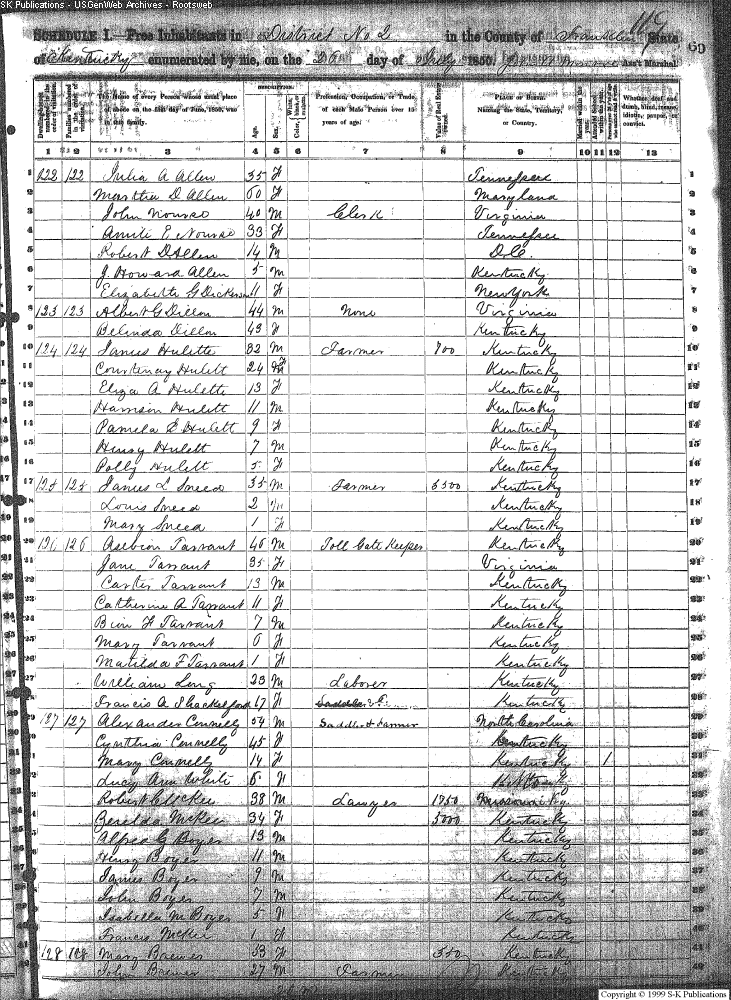 SK Publications - USGenWeb Archives - Rootsweb
SCHEDULE I.—Free Inhabitants in District No 2 in the County of Franklin State
of Kentucky enumerated by me, on the 26 day of July 1850. Ass't Marshal.
Dwelling-houses numbered in the order of visitation. Families numbered in the order of visitation. The Name of every Person whose usual place of abode on the first day of June, 1850, was in this family. DESCRIPTION. Age. Sex. Color Profession, Occupation, or Trade of each Male Person over 15 years of age. Value of Real Estate owned. PLACE OF BIRTH. Naming the State, Territory, or Country. Whether deaf and dumb, blind, insane, idiotic, pauper, or convict.
1 2 3 4 5 6 7 8 9 10 11 12 13
1 122 122 Julia A Allen 35 F Tennessee 1
2 Martha D Allen 60 F Maryland 2
3 John Nourse 40 M Clerk Virginia 3
4 E Nourse 33 F Tennessee 4
5 Robert D Allen 14 M D.C. 5
6 J. Howard Allen 5 M Kentucky 6
7 Elizabeth G Dickerson 11 F New York 7
8 123 123 Albert G Dillon 44 M None Virginia 8
9 Belinda Dillon 43 F Kentucky 9
10 124 124 James Hulette 32 M Farmer 700 Kentucky 10
11 Courtenay Hulett 24 F Kentucky 11
12 Eliza A Hulette 13 F Kentucky 12
13 Harrison Hulett 11 M Kentucky 13
14 Pamela E Hulett 9 F Kentucky 14
15 Henry Hulett 7 M Kentucky 15
16 Polly Hulett 5 F Kentucky 16
17 125 125 James L Sneed 35 M Farmer 6500 Kentucky 17
18 Louis Sneed 2 M Kentucky 18
19 Mary Sneed 1 F Kentucky 19
20 126 126 Tarrant 46 M Toll Gate Keeper Kentucky 20
21 Jane Tarrant 35 F Virginia 21
22 Carter Tarrant 13 M Kentucky 22
23 Catherine A Tarrant 11 F Kentucky 23
24 Ben F Tarrant 7 M Kentucky 24
25 Mary Tarrant 6 F Kentucky 25
26 Matilda F Tarrant 1 F Kentucky 26
27 William Long 23 M Laborer Kentucky 27
28 Francis A Shackelford 17 F Kentucky 28
29 127 127 Alexander Connelly 54 M Saddler & Farmer North Carolina 29
30 Cynthia Connelly 45 F Kentucky 30
31 Mary Connelly 14 F Kentucky 1 31
32 Lucy Ann White 6 F 32
33 Robert McKee 38 M Lawyer 1750 33
34 Zerelda McKee 34 F 5000 Kentucky 34
35 Alfred G Boyer 13 M Kentucky 35
36 Henry Boyer 11 M Kentucky 36
37 James Boyer 9 M Kentucky 37
38 John Boyer 7 M Kentucky 38
39 Isabella M Boyer 5 F Kentucky 39
40 Francis McKee 1 F Kentucky 40
41 128 128 Mary Brewer 53 F 550 Kentucky 41
42 John Brewer 27 M Farmer Kentucky 42
Copyright © 1999 S-K Publications